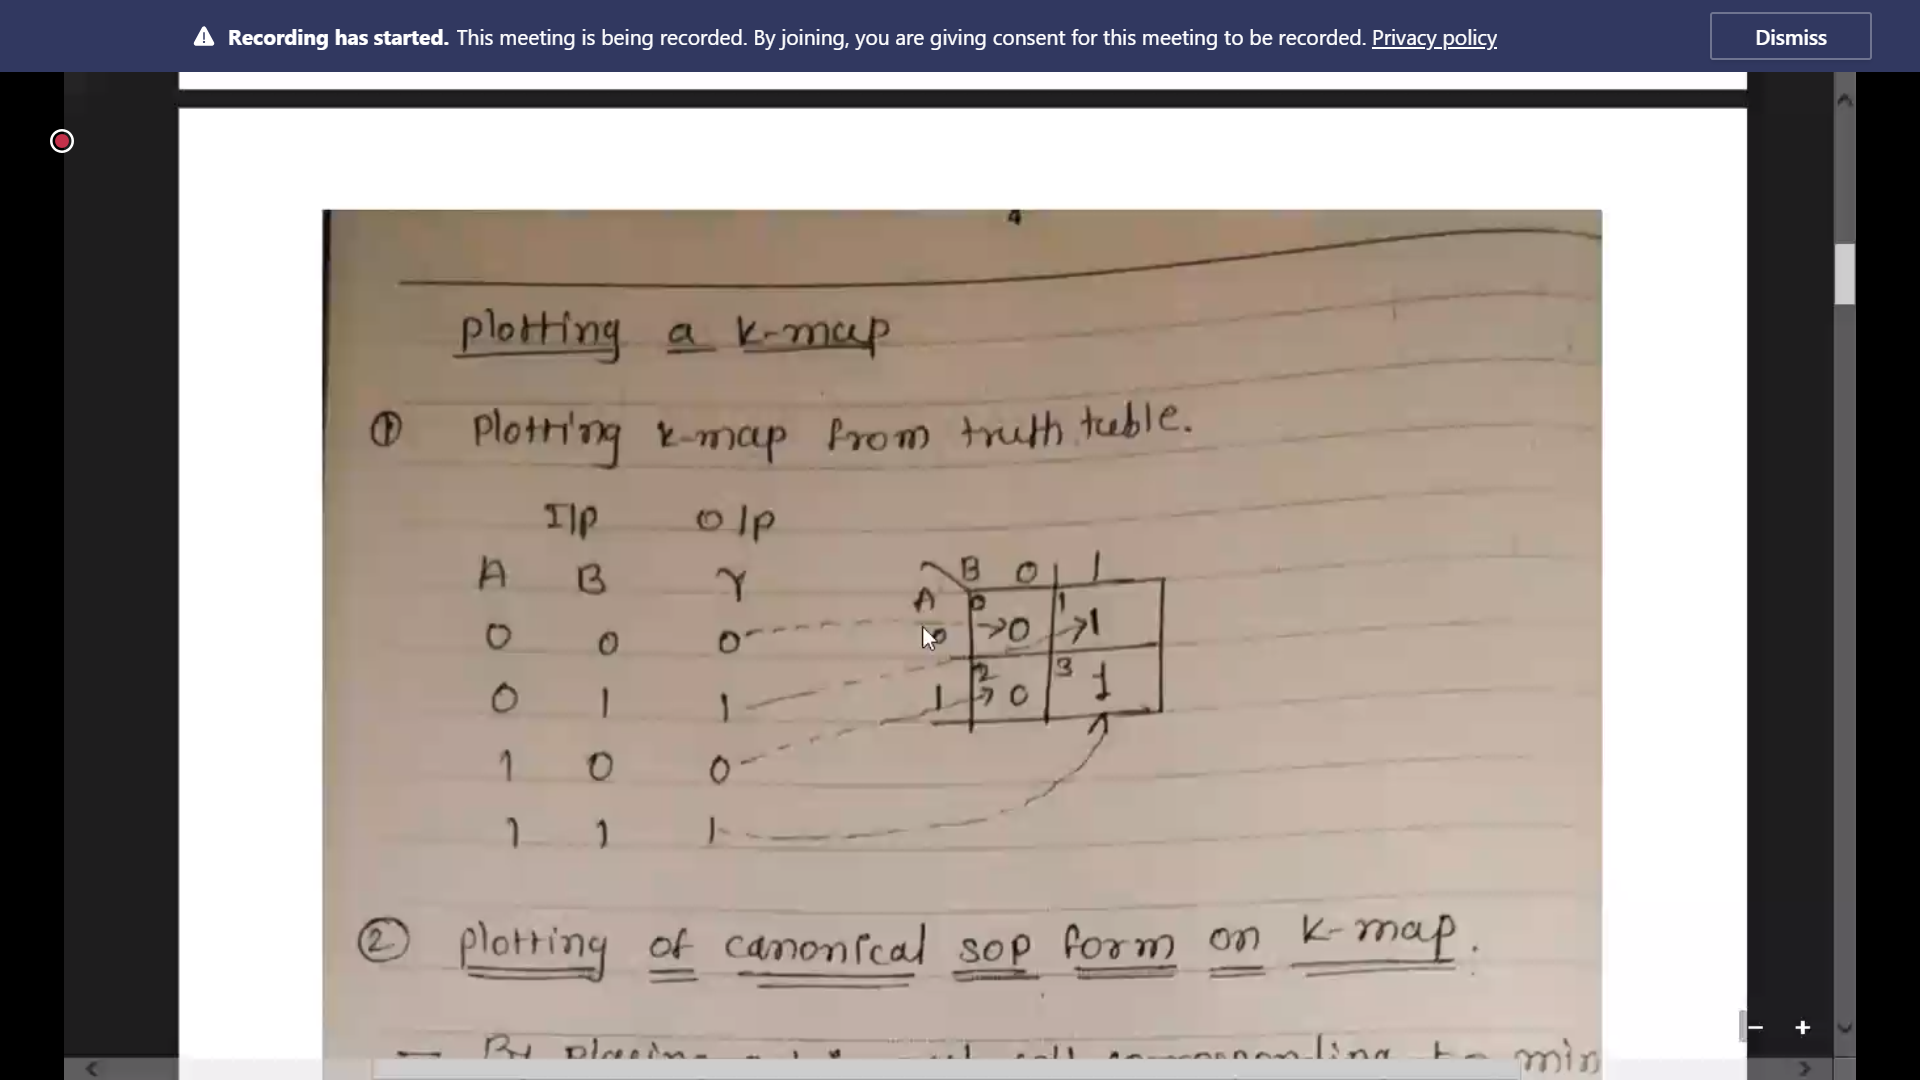 Recording has started. This meeting is being recorded. By joining, you are giving consent for this meeting to be recorded. Privacy policy
Dismiss
4
plotting a k-map
① Plotting k-map from truth table.
I/p O/p
A B Y
0 0 0
0 1 1
1 0 0
1 1 1
B 0 1
A 0 1
0 →0 →1
2 3
1 → 0 1
② plotting of canonical sop form on k-map.
— By placing corresponding to min